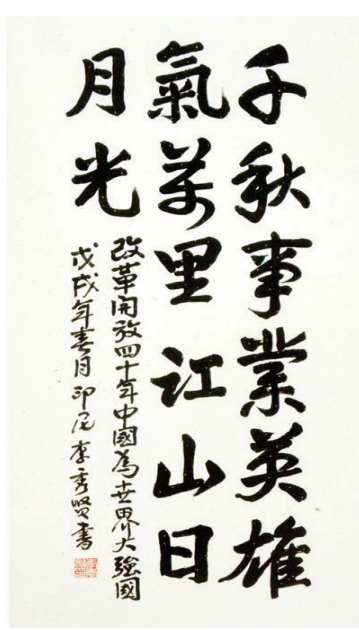 千秋事業英雄
氣萬里江山日
月光
改革開放四十年中國為世界大強國
戊戌年春月印尼李秀賢書